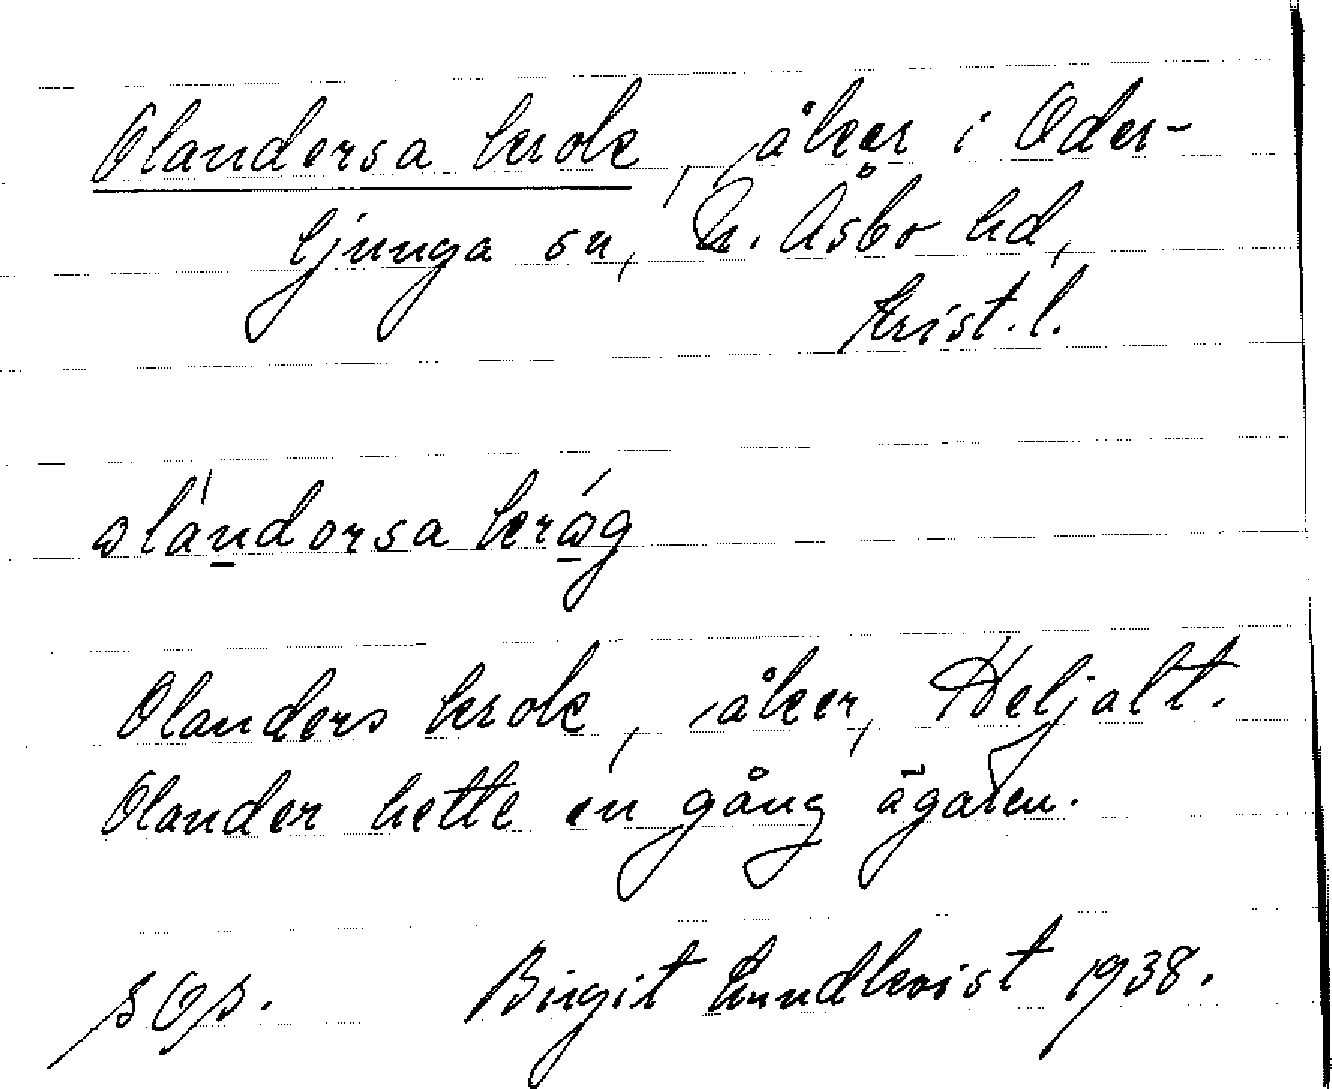 Olandersa krok, åker i Oder-
ljunga sn, N. Åsbo hd,
Krist. l.
olándorsa kråg
Olanders krok, åker, Heljalt.
Olander hette en gång ägaren.
Birgit Lundkvist 1938.